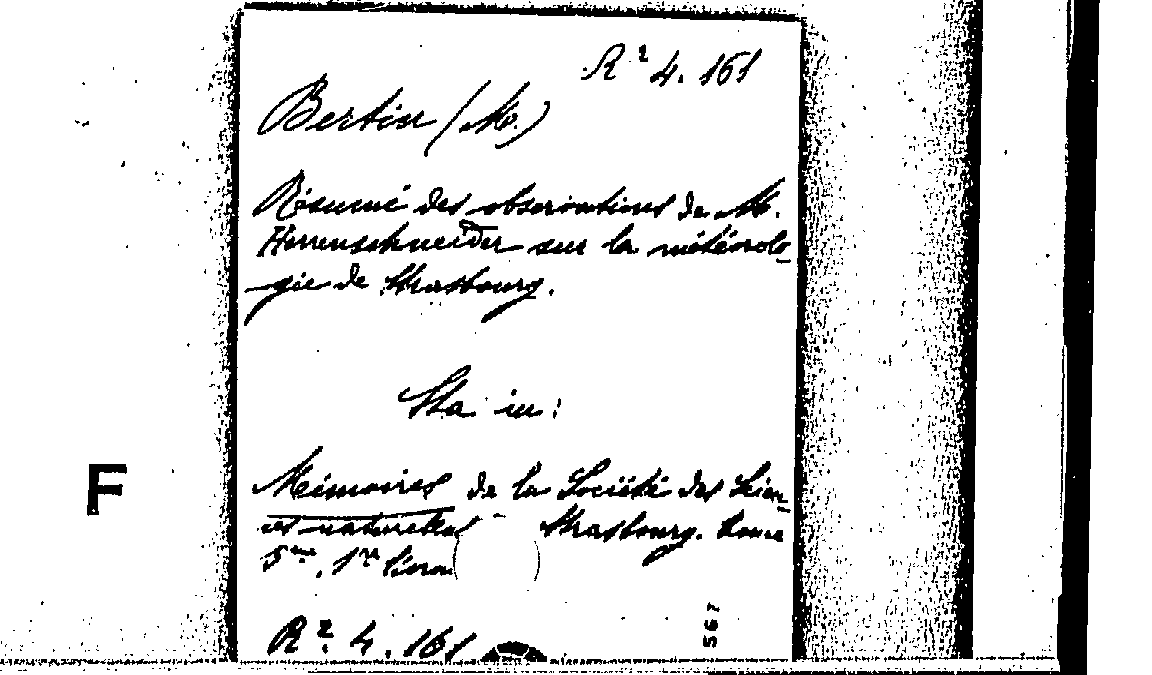 R² 4. 161
Bertin (M.)
Résumé des observations de M.
Herrenschneider sur la météorolo-
gie de Strasbourg.
Sta in:
Mémoires de la Société des Scien-
ces naturelles Strasbourg. tome
5me. 1re livrai
R². 4. 161
567
F